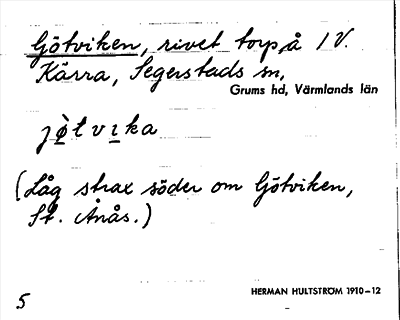 Götviken, rivet torp å IV.
Kärra, Segerstads sn,
Grums hd, Värmlands län
jø̀tvıka
(Låg strax söder om Götviken,
St. Ånås.)
HERMAN HULTSTRÖM 1910–12
5